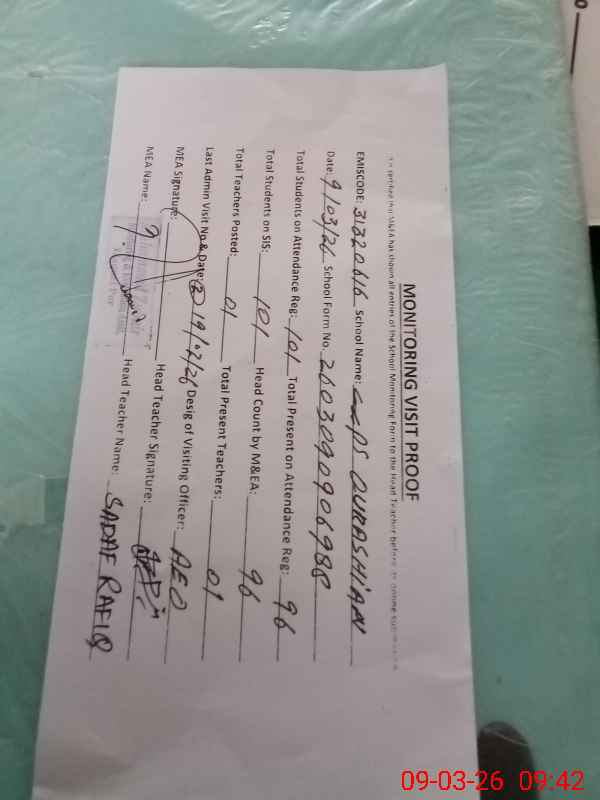 MONITORING VISIT PROOF
It is certified that M&EA has shown all entries of the School Monitoring Form to the Head Teacher before its online
EMISCODE: 31320616 School Name: PS QURASHIAN
Date: 9/03/26 School Form No. 2603090906988
Total Students on Attendance Reg: 101 Total Present on Attendance Reg: 96
Total Students on SIS: 101 Head Count by M&EA: 96
Total Teachers Posted: 01 Total Present Teachers: 01
Last Admin Visit No & Date: 19/02/26 Desig of Visiting Officer: AEO
MEA Signature: Head Teacher Signature:
MEA Name: Head Teacher Name: SADAF RAFIQ
09-03-26 09:42